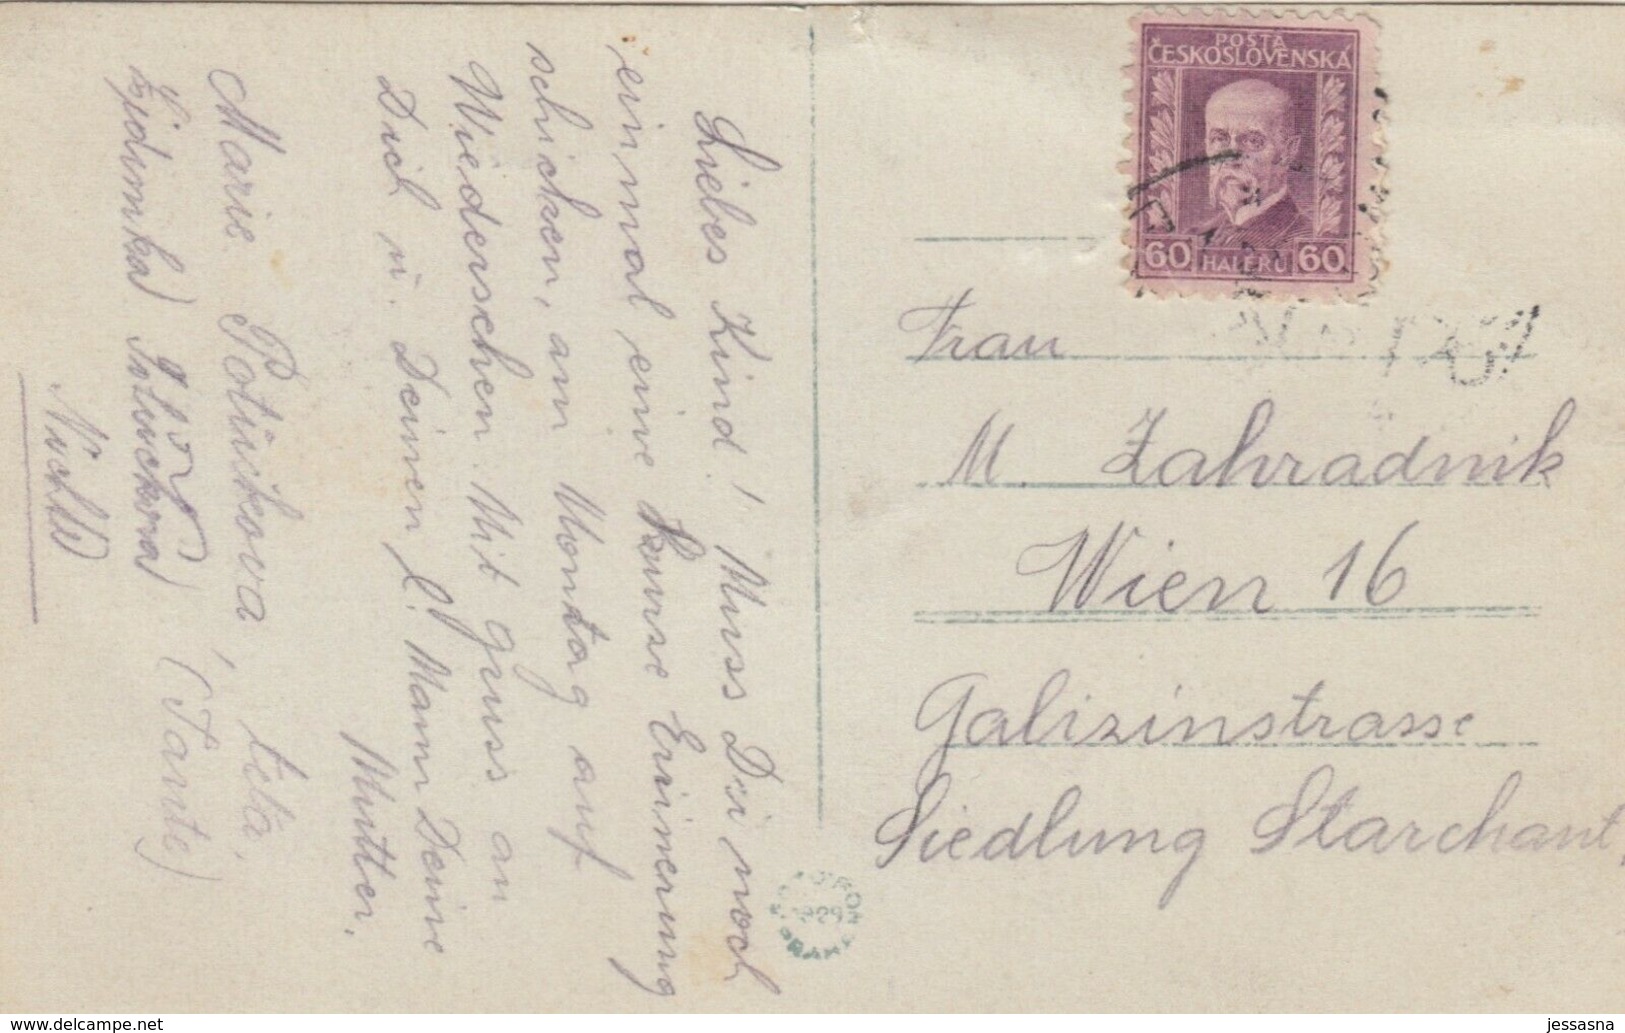 Liebes Kind! Muss Dir noch
einmal eine kurse Erinnerung
schicken, am Montag auf
Wiederschen. Mit gruss an
Dich u. Deinen l. Mann Deine
Mutter.
Marie Potůčkova, teta,
(Tante)
POSTA
ČESKOSLOVENSKÁ
60 HALÉRŮ 60
Frau
M. Zahradnik
Wien 16
Galizinstrasse
Siedlung Starchant,
1929
www.delcampe.net
jessasna